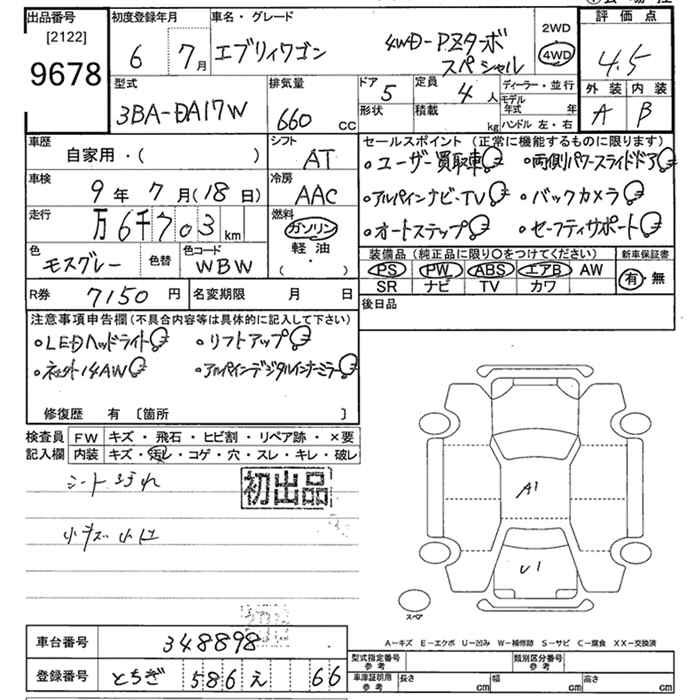 出品番号 初度登録年月 車名・グレード 評価点
[2122]
9678
6 7月 エブリイワゴン 4WD-PZターボ
スペシャル
2WD
4WD
4.5
型式 3BA-DA17W
排気量 660 CC
ドア 5 定員 4 人
形状 積載 kg
ディーラー・並行
モデル年式 年
ハンドル 左・右
外装 内装
A B
車歴 自家用・( )
シフト AT
車検 9年 7月(18日)
冷房 AAC
走行 万6千703km
燃料 ガソリン
軽油
( ・ )
色 モスグレー 色替 色コード WBW
R券 7150円 名変期限 月 日
セールスポイント(正常に機能するものに限ります)
・ユーザー買取車 ・両側パワースライドドア
・アルパインナビ・TV ・バックカメラ
・オートステップ ・セーフティサポート
装備品(純正品に限り○をつけてください) 新車保証書
PS PW ABS エアB AW 有・無
SR ナビ TV カワ
後日品
注意事項申告欄(不具合内容等は具体的に記入して下さい)
・LEDヘッドライト ・リフトアップ
・社外14AW ・アルパインデジタルインナーミラー
修復歴 有 [箇所 ]
検査員 FW キズ・飛石・ヒビ割・リペア跡・×要
記入欄 内装 キズ・汚レ・コゲ・穴・スレ・キレ・破レ
シート
初出品
小キズ 小凹
A1
U1
スペア
A−キズ E−エクボ U−凹み W−補修跡 S−サビ C−腐食 XX−交換済
車台番号 348898
登録番号 とちぎ 586 え 66
型式指定番号 参考 類別区分番号 参考
車庫証明用 参考 長さ cm 幅 cm 高さ cm